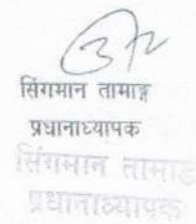 सिंगमान तामाङ्ग
प्रधानाध्यापक
सिंगमान तामाङ्ग
प्रधानाध्यापक